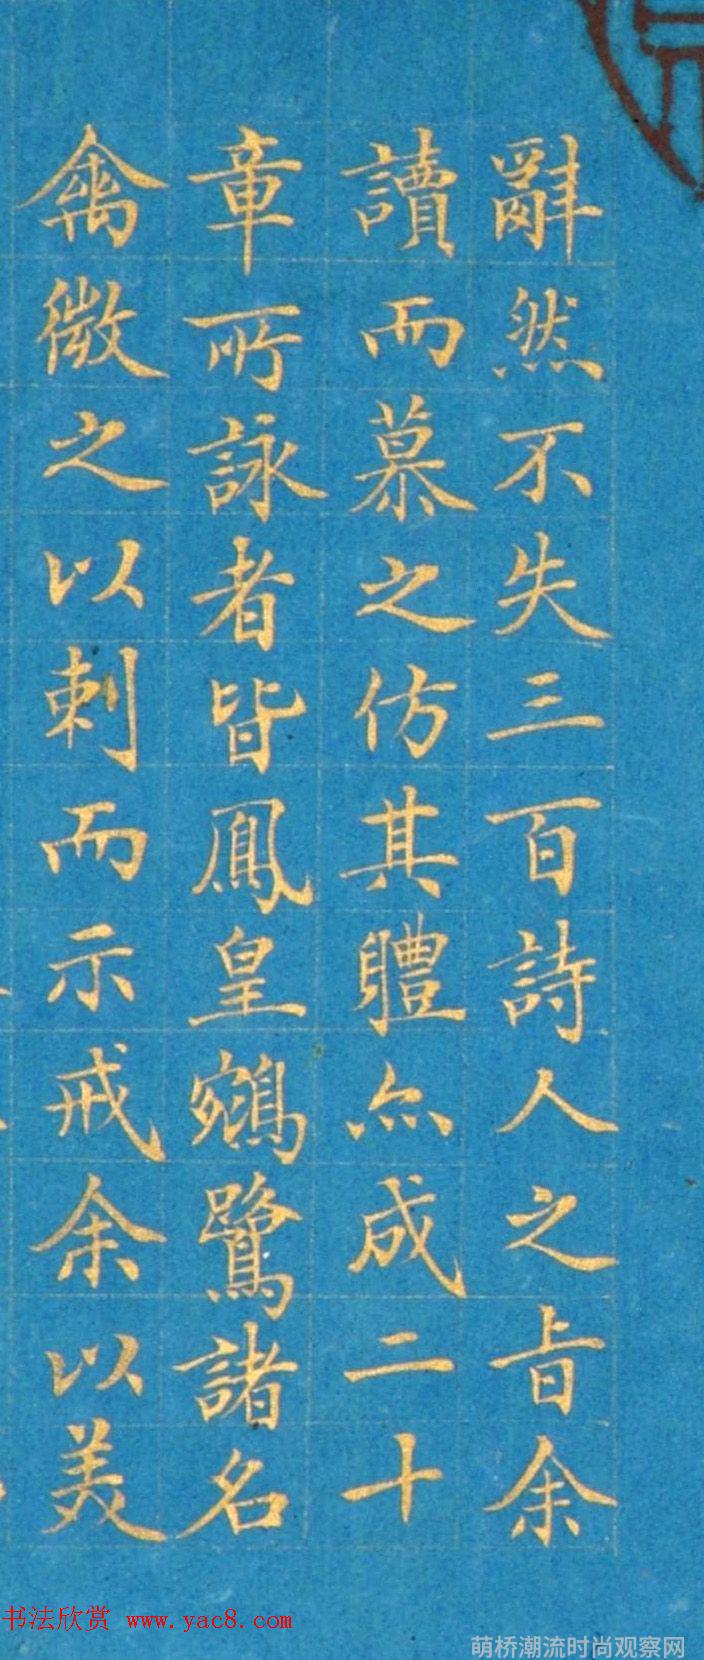 辭然不失三百詩人之旨余
讀而慕之仿其體亦成二十
章所詠者皆鳳皇鵷鷺諸名
禽微之以刺而示戒余以美
书法欣赏 www.yac8.com
萌桥潮流时尚观察网